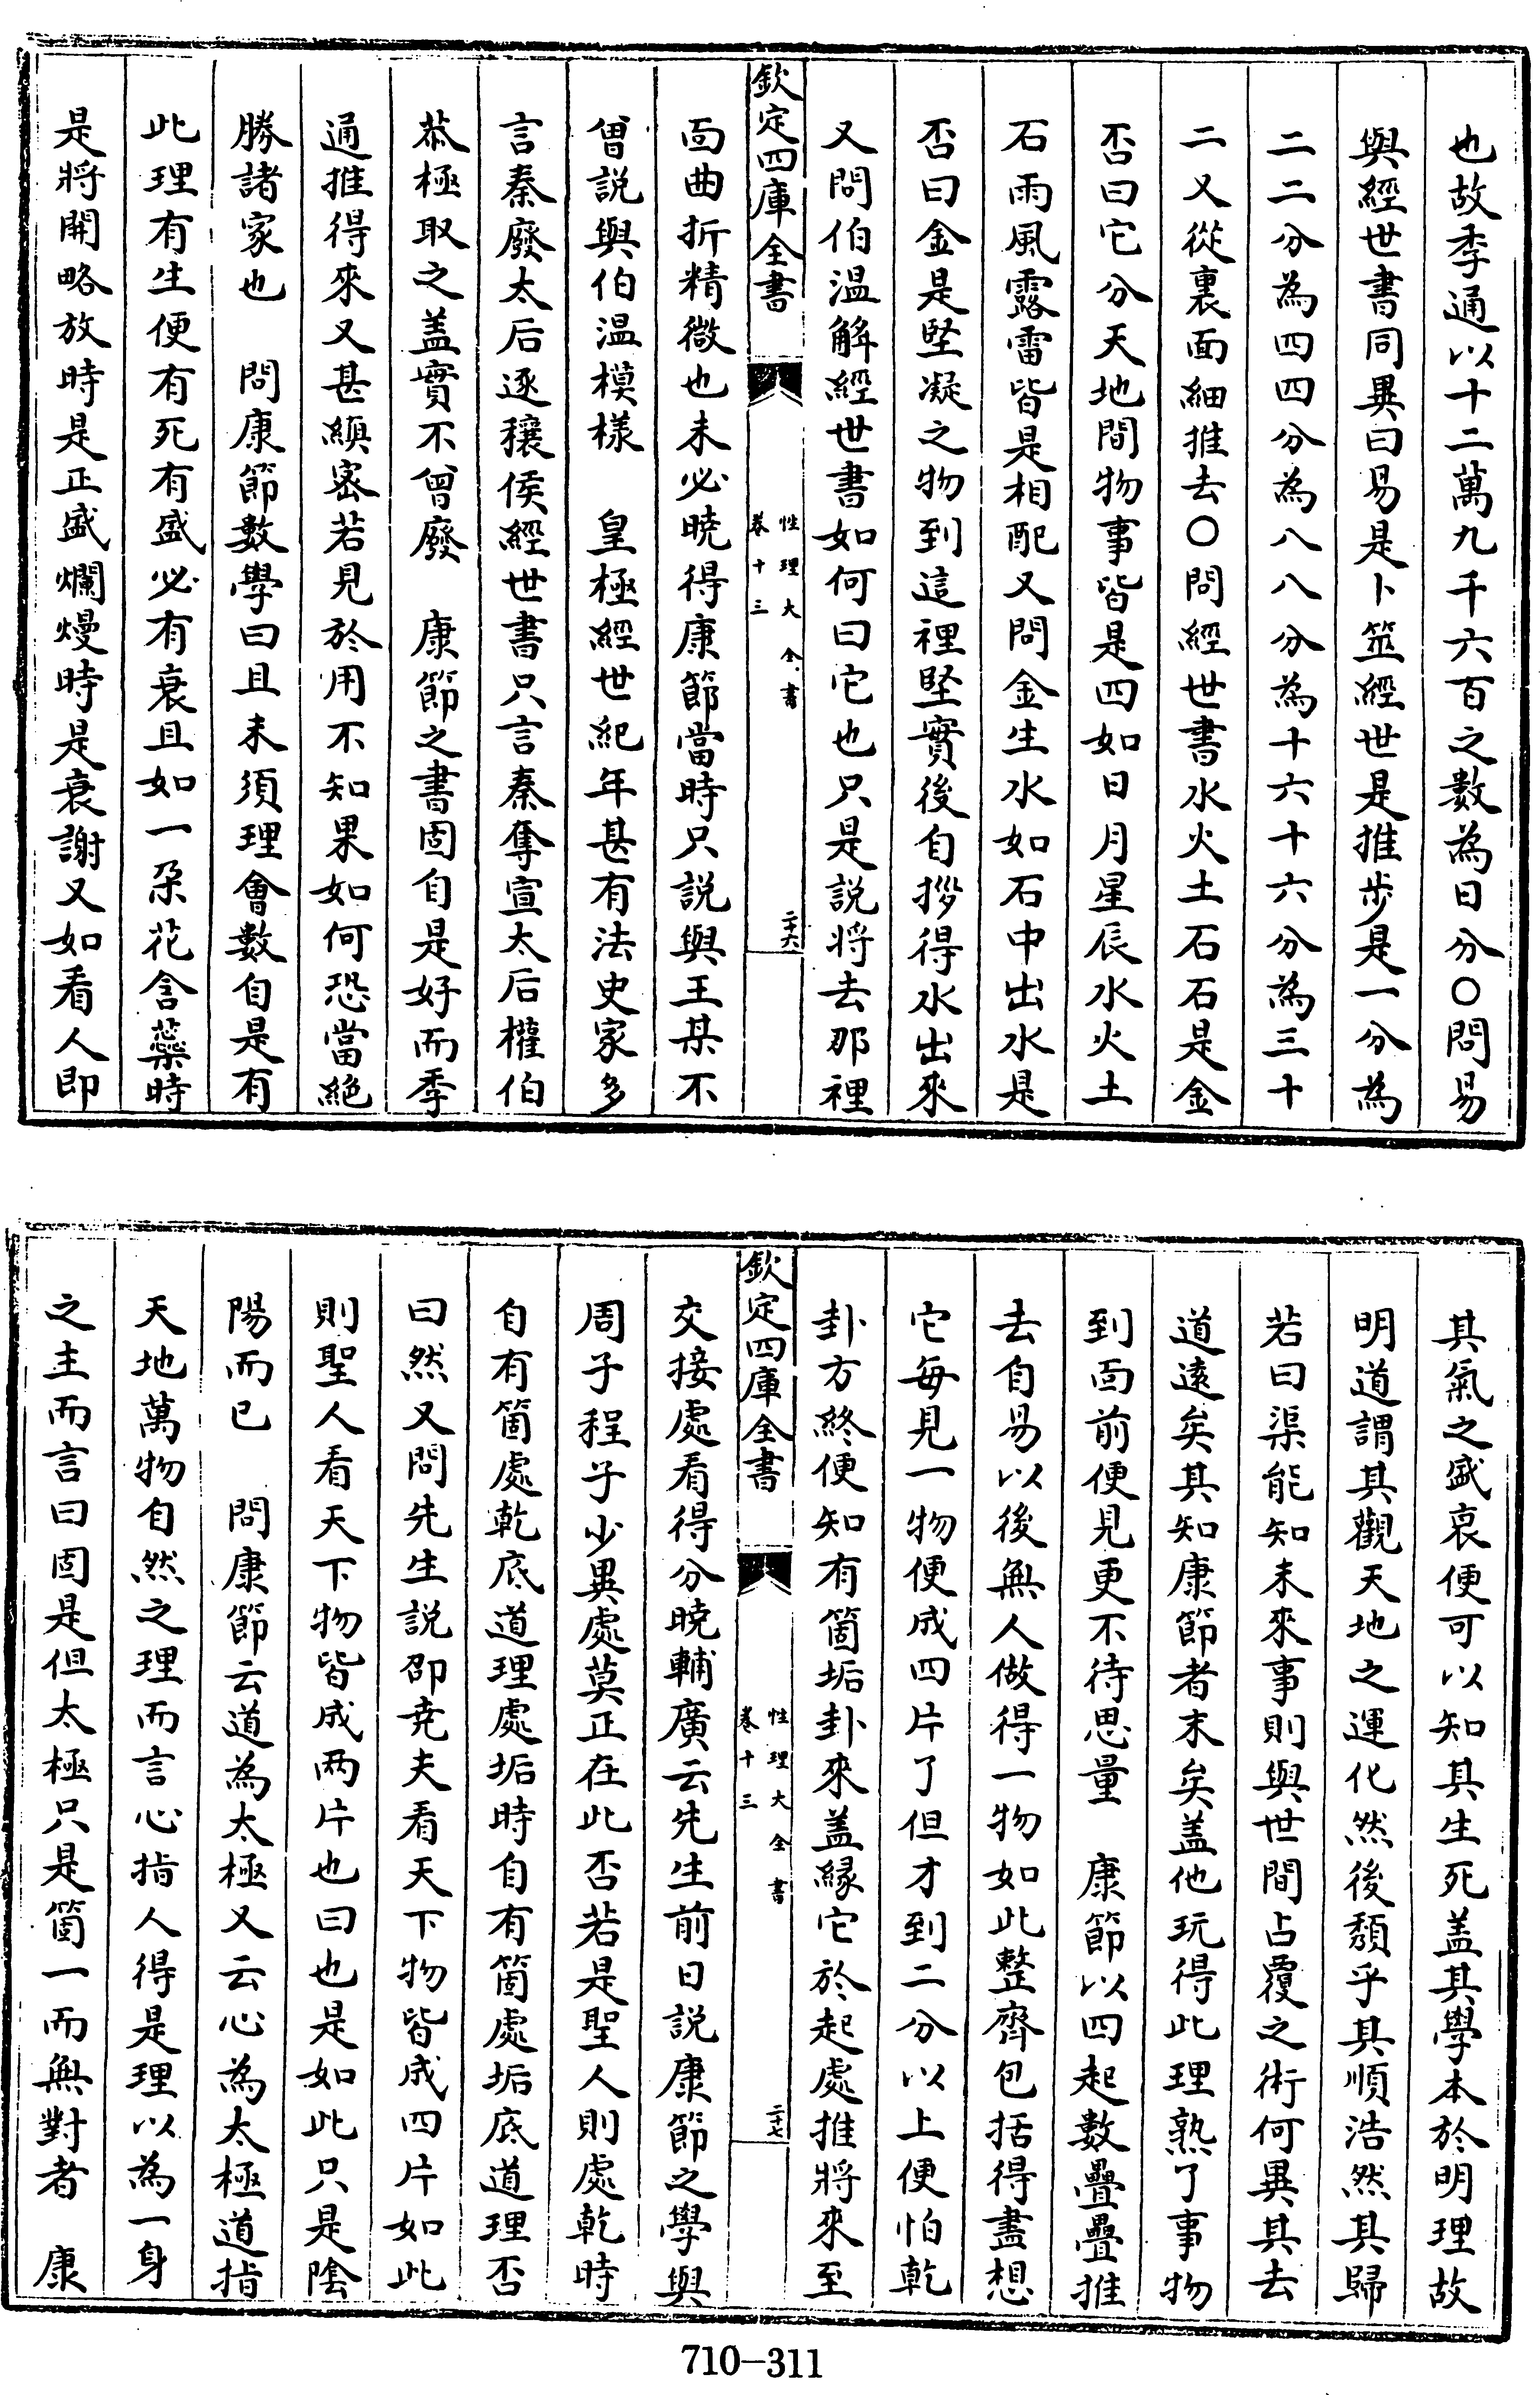 也故季通以十二萬九千六百之數為日分〇問易
與經世書同異曰易是卜筮經世是推步是一分為
二二分為四四分為八八分為十六十六分為三十
二又從裏面細推去〇問經世書水火土石石是金
否曰它分天地間物事皆是四如日月星辰水火土
石雨風露雷皆是相配又問金生水如石中出水是
否曰金是堅凝之物到這裡堅實後自拶得水出來
又問伯温解經世書如何曰它也只是説將去那裡
欽定四庫全書
性理大全書
卷十三
二十六
面曲折精微也未必曉得康節當時只説與王某不
曾説與伯温模樣　皇極經世紀年甚有法史家多
言秦廢太后逐穰侯經世書只言秦奪宣太后權伯
恭極取之盖實不曾廢　康節之書固自是好而季
通推得來又甚縝密若見於用不知果如何恐當絶
勝諸家也　問康節數學曰且未須理會數自是有
此理有生便有死有盛必有衰且如一朶花含蘂時
是將開略放時是正盛爛熳時是衰謝又如看人即
其氣之盛衰便可以知其生死盖其學本於明理故
明道謂其觀天地之運化然後頽乎其順浩然其歸
若曰渠能知未來事則與世間占覆之術何異其去
道遠矣其知康節者末矣盖他玩得此理熟了事物
到面前便見更不待思量　康節以四起數疊疊推
去自易以後無人做得一物如此整齊包括得盡想
它每見一物便成四片了但才到二分以上便怕乾
卦方終便知有箇垢卦來盖緣它於起處推將來至
欽定四庫全書
性理大全書
卷十三
二十七
交接處看得分曉輔廣云先生前日説康節之學與
周子程子少異處莫正在此否若是聖人則處乾時
自有箇處乾底道理處垢時自有箇處垢底道理否
曰然又問先生説邵尭夫看天下物皆成四片如此
則聖人看天下物皆成兩片也曰也是如此只是陰
陽而已　問康節云道為太極又云心為太極道指
天地萬物自然之理而言心指人得是理以為一身
之主而言曰固是但太極只是箇一而無對者　康
710-311